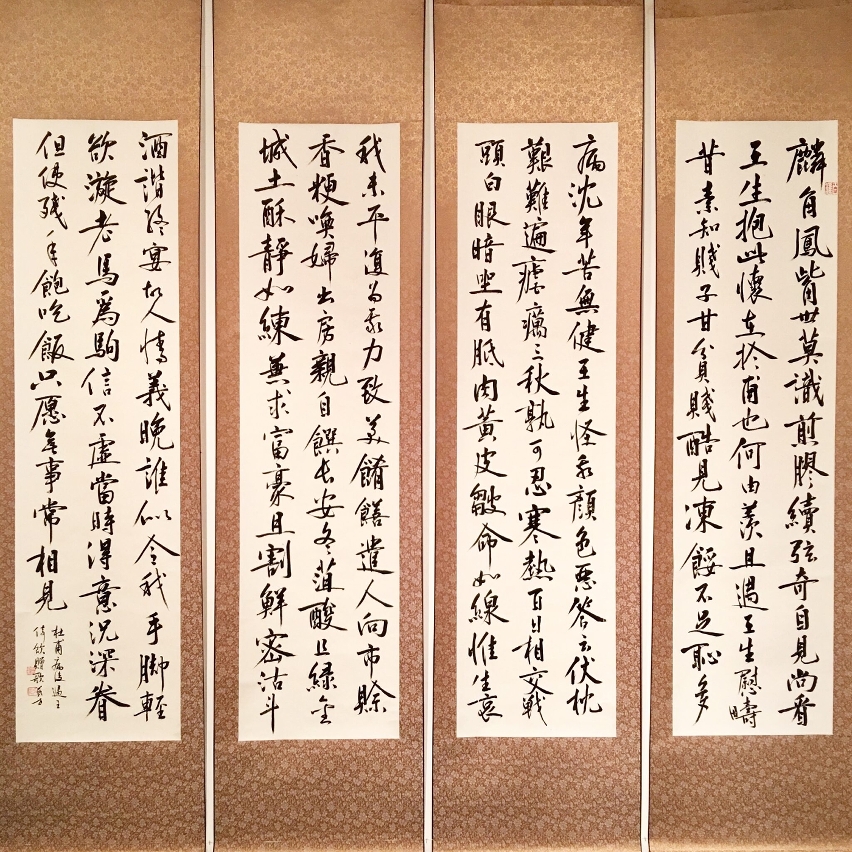 麟角鳳觜世莫識煎膠續弦奇自見尚看
王生抱此懷在於甫也何由羨且遇王生慰疇
昔素知賤子甘貧賤酷見凍餒不足恥多
病沈年苦無健王生怪我顏色惡答云伏枕
艱難遍瘧癘三秋孰可忍寒熱百日相交戰
頭白眼暗坐有胝肉黄皮皺命如線惟生哀
我未平復为我力致美餚饍遣人向市賒
香粳喚婦出房親自饌長安冬菹酸且綠金
城土酥靜如練兼求富豪且割鮮密沽斗
酒諧終宴故人情義晚誰似令我手脚輕
欲漩老馬爲駒信不虛當時得意況深眷
但使殘年飽吃飯只愿無事常相見
杜甫病後遇王
倚飲贈歌